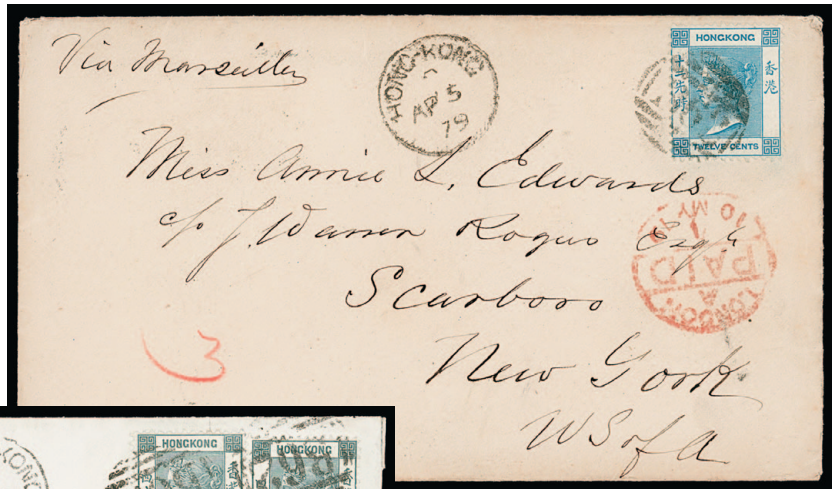 Via Marseilles
HONG-KONG
C
AP 5
79
HONGKONG
十二先時
香港
TWELVE CENTS
Miss Annie L. Edwards
c/o J. Warren Rogers Esqre
Scarboro
New York
US of A
LONDON
A
PAID
10 MY 79
3
HONGKONG
HONGKONG